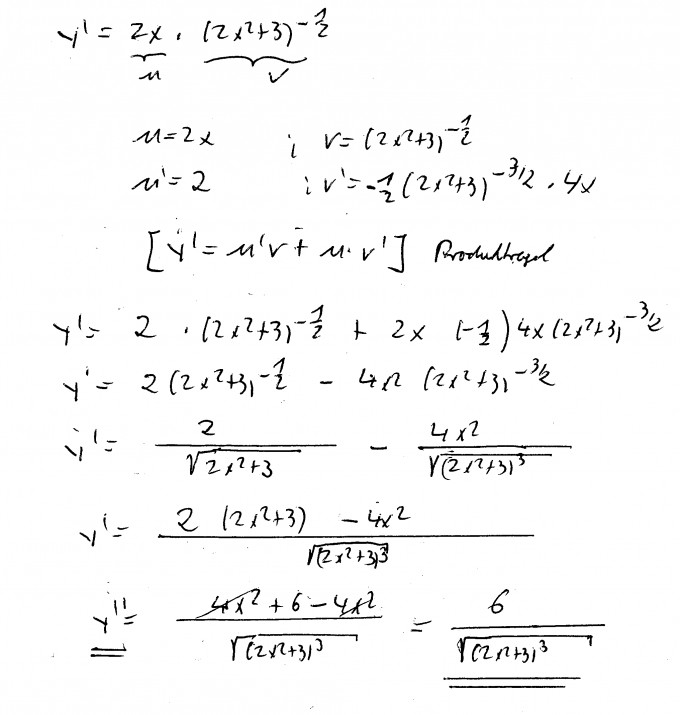 y' = 2x · (2x²+3)^-1/2
u v
u = 2x ; v = (2x²+3)^-1/2
u' = 2 ; v' = -1/2 (2x²+3)^-3/2 · 4x
[y' = u'v + u · v'] Produktregel
y' = 2 · (2x²+3)^-1/2 + 2x (-1/2) 4x (2x²+3)^-3/2
y' = 2 (2x²+3)^-1/2 - 4x² (2x²+3)^-3/2
y' = 2/√(2x²+3) - 4x²/√((2x²+3)³)
y' = (2 (2x²+3) - 4x²)/√((2x²+3)³)
y'' = (4x² + 6 - 4x²)/√((2x²+3)³) = 6/√((2x²+3)³)